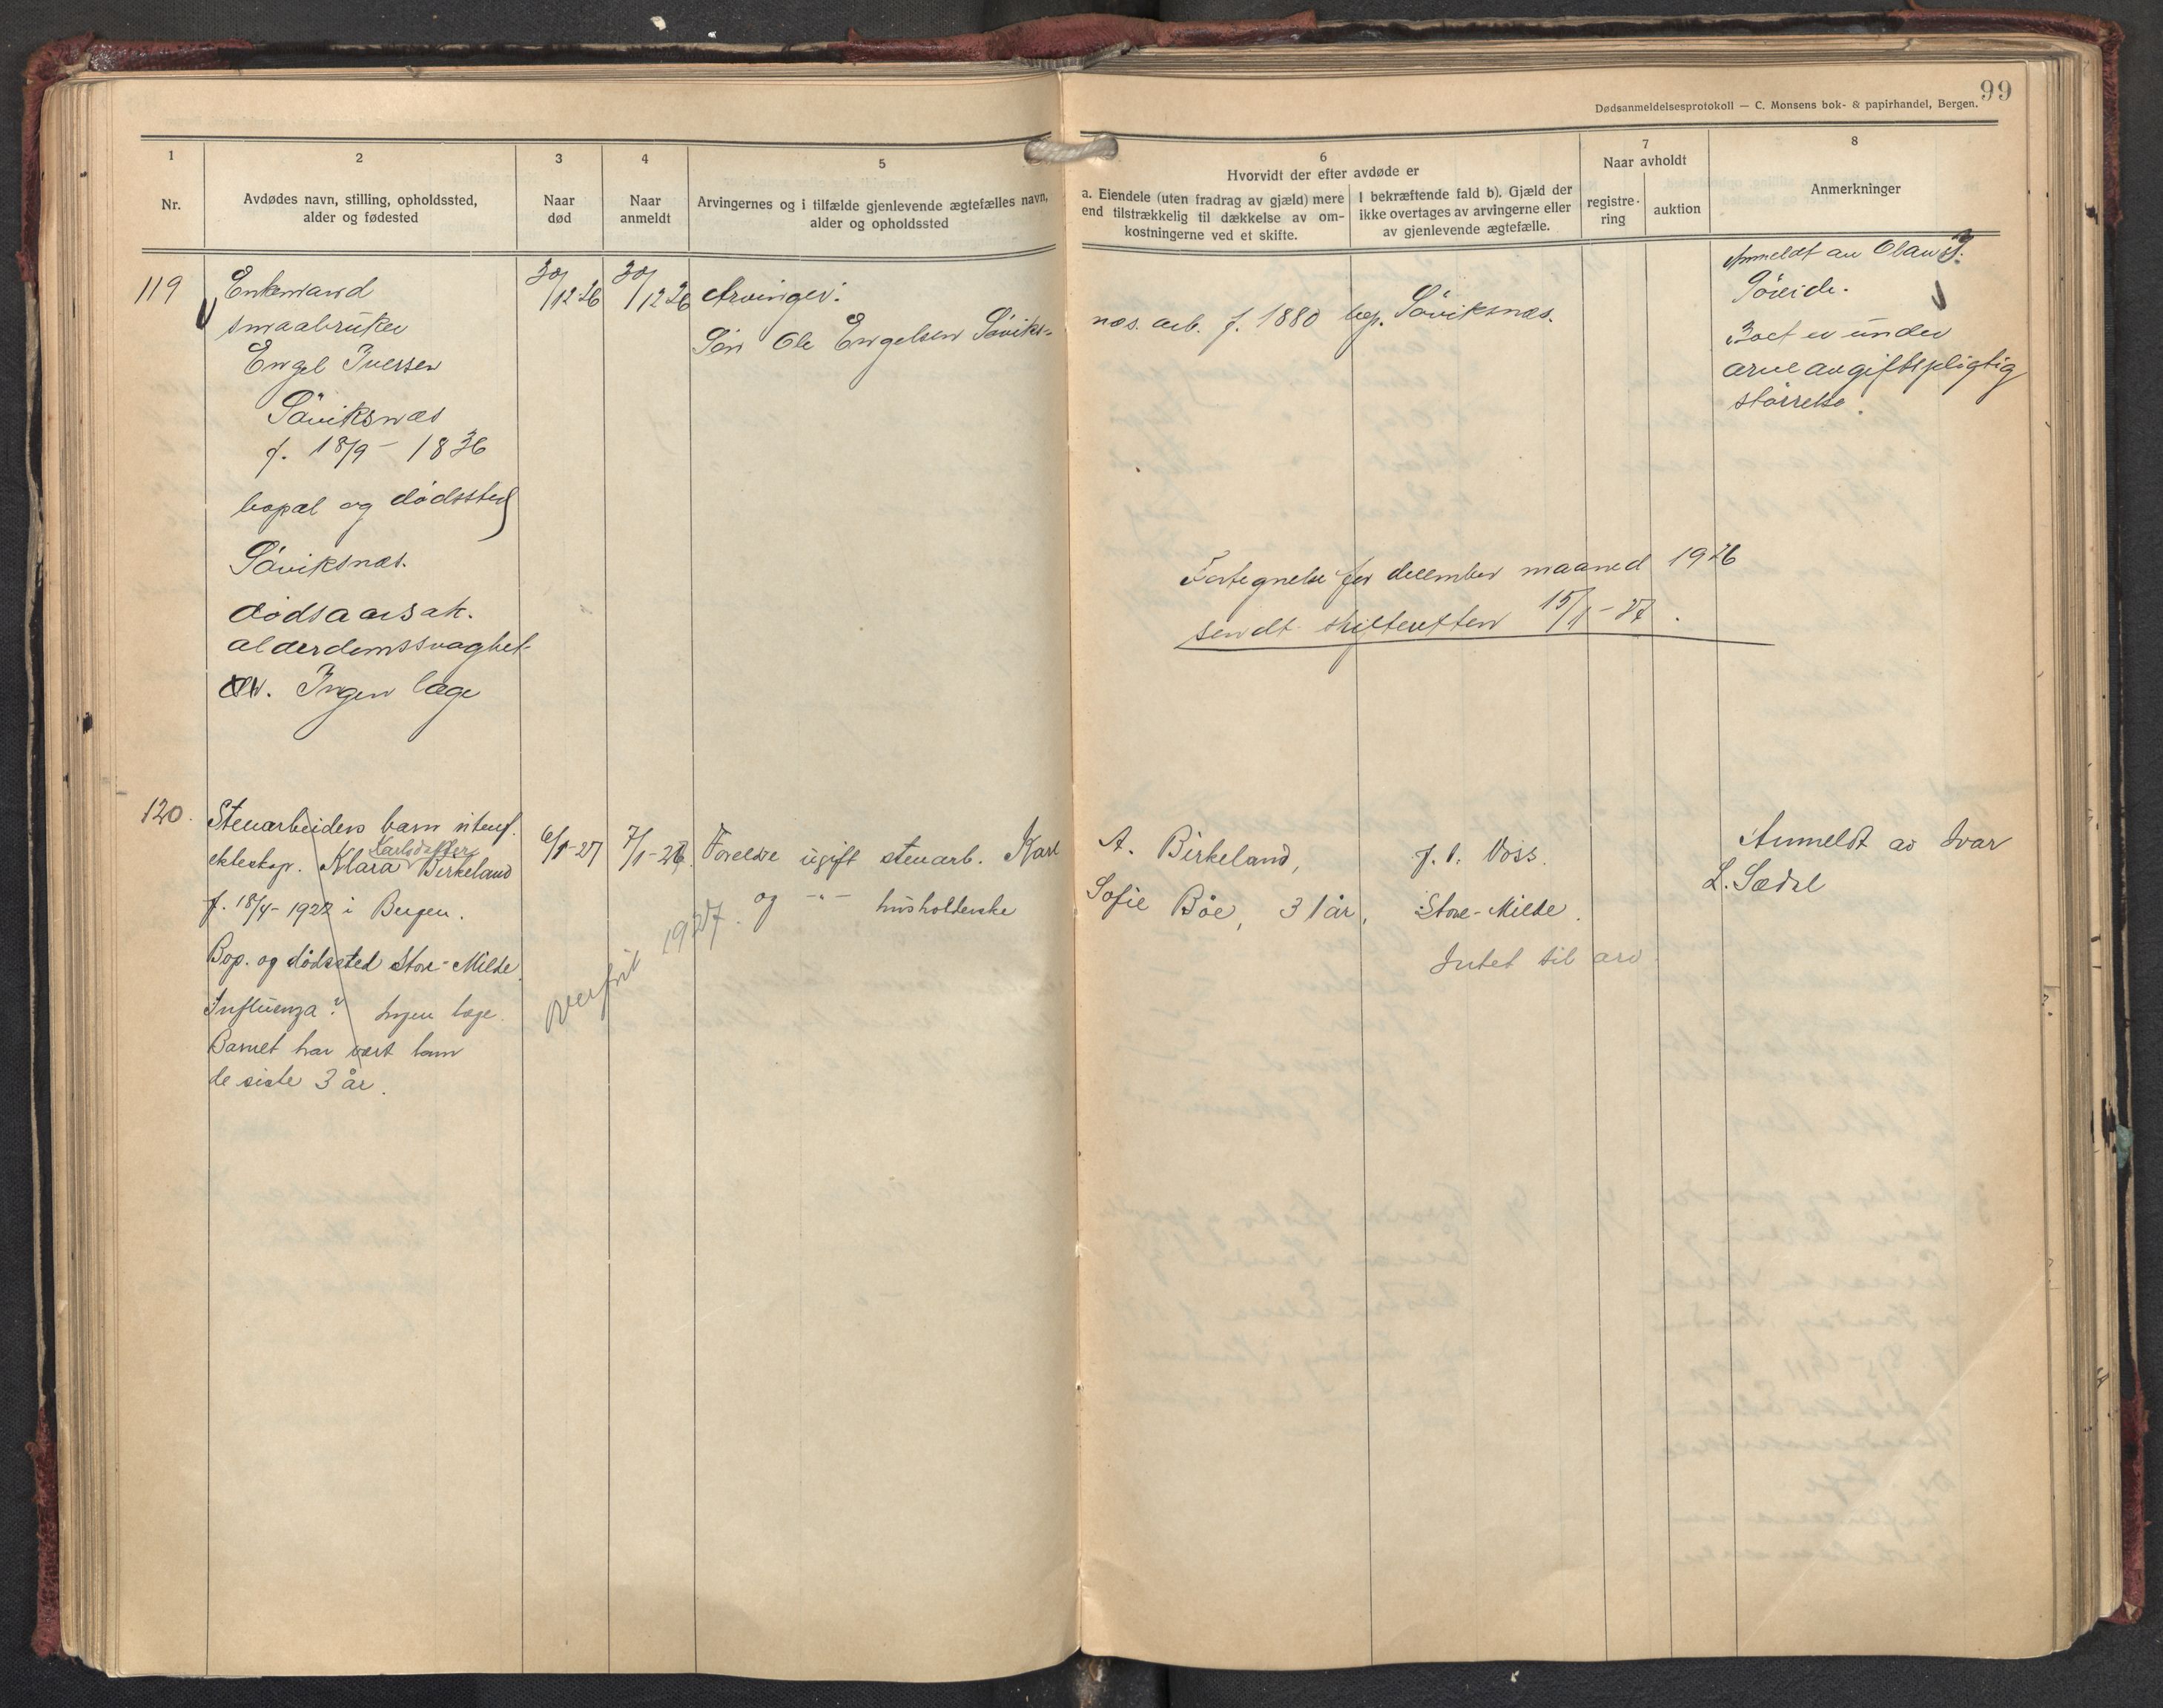 99
Dødsanmeldelsesprotokoll — C. Monsens bok- & papirhandel, Bergen.
1
Nr.
2
Avdødes navn, stilling, opholdssted,
alder og fødested
3
Naar
død
4
Naar
anmeldt
5
Arvingernes og i tilfælde gjenlevende ægtefælles navn,
alder og opholdssted
6
Hvorvidt der efter avdøde er
a. Eiendele (uten fradrag av gjæld) mere
end tilstrækkelig til dækkelse av om-
kostningerne ved et skifte.
I bekræftende fald b). Gjæld der
ikke overtages av arvingerne eller
av gjenlevende ægtefælle.
7
Naar avholdt
registre-
ring
auktion
8
Anmerkninger
119
Enkemand
smaabruker
Engel Iversen
Søviksnæs
f. 18/9 - 1836
bopæl og dødssted
Søviksnæs.
dødsaarsak.
alderdomssvaghet.
Ingen læge
30/12 26
30/12 26
Arvinger:
Søn Ole Engelsen Søviks-
næs. arb. f. 1880 bop. Søviksnæs.
Anmeldt av Olav J.
Søreide.
Boet er under
arveavgiftspligtig
størrelse.
Fortegnelse for december maaned 1926
sendt skifteretten 15/1-27.
120.
Stenarbeiders barn utenf.
Karlsdatter
ekteskap. Klara Birkeland
f. 18/4-1922 i Bergen.
Bop. og dødssted Store-Milde
Influenza? Ingen læge.
Barnet har vært lam
de siste 3 år.
6/1-27
7/1-26.
Overført 1927.
Foreldre ugift stenarb. Karl A. Birkeland, f. i. Voss.
og -"- husholderske Sofie Bøe, 31 år, Store-Milde.
Intet til arv.
Anmeldt av Ivar
L. Sædal